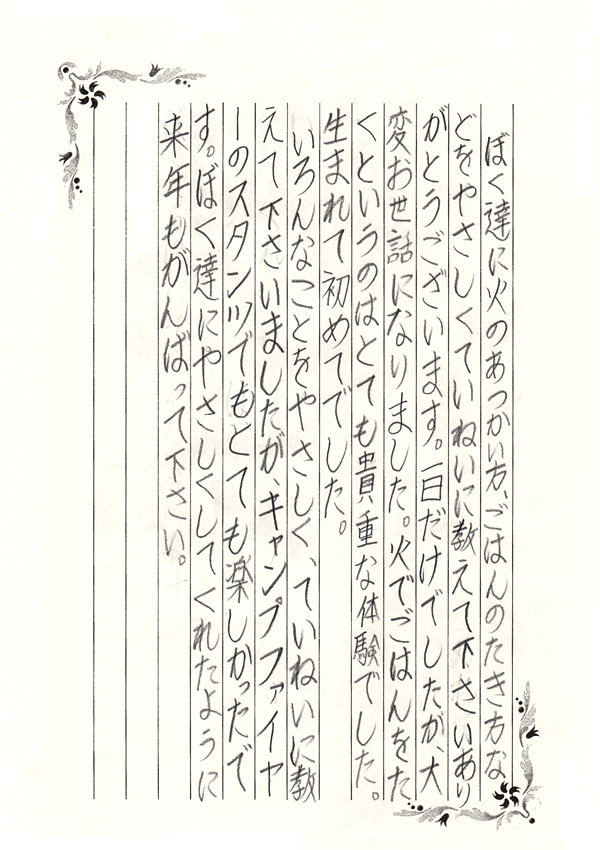 ぼく達に火のあつかい方、ごはんのたき方な
どをやさしくていねいに教えて下さいあり
がとうございます。一日だけでしたが、大
変お世話になりました。火でごはんをた
くというのはとても貴重な体験でした。
生まれて初めてでした。
いろんなことをやさしく、ていねいに教
えて下さいましたが、キャンプファイヤ
ーのスタンツでもとても楽しかったで
す。ぼく達にやさしくしてくれたように
来年もがんばって下さい。